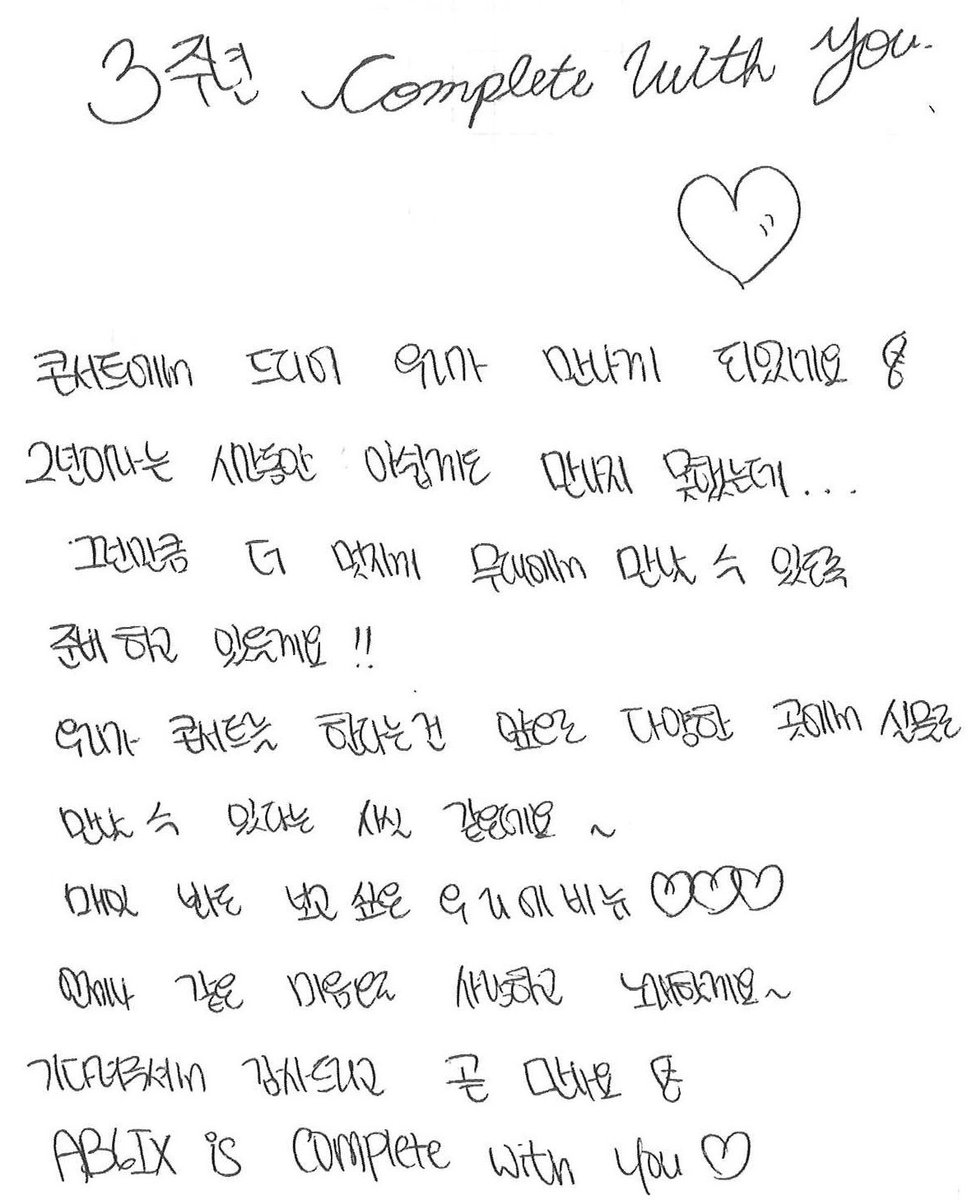 3주년 Complete with you.
콘서트에서 드디어 우리가 만나게 되었네요
2년이라는 시간동안 아쉽게도 만나지 못했는데...
그런만큼 더 멋지게 무대에서 만날 수 있도록
준비 하고 있을게요 !!
우리가 콘서트를 한다는건 앞으로 다양한 곳에서 실물로
만날 수 있다는 사실 같은데요 ~
매일 봐도 보고 싶은 우리 에비뉴 ♡♡♡
언제나 같은 마음으로 사랑하고 노래할게요~
기다려주셔서 감사드리고 곧 만나요
AB6IX is complete with you ♡